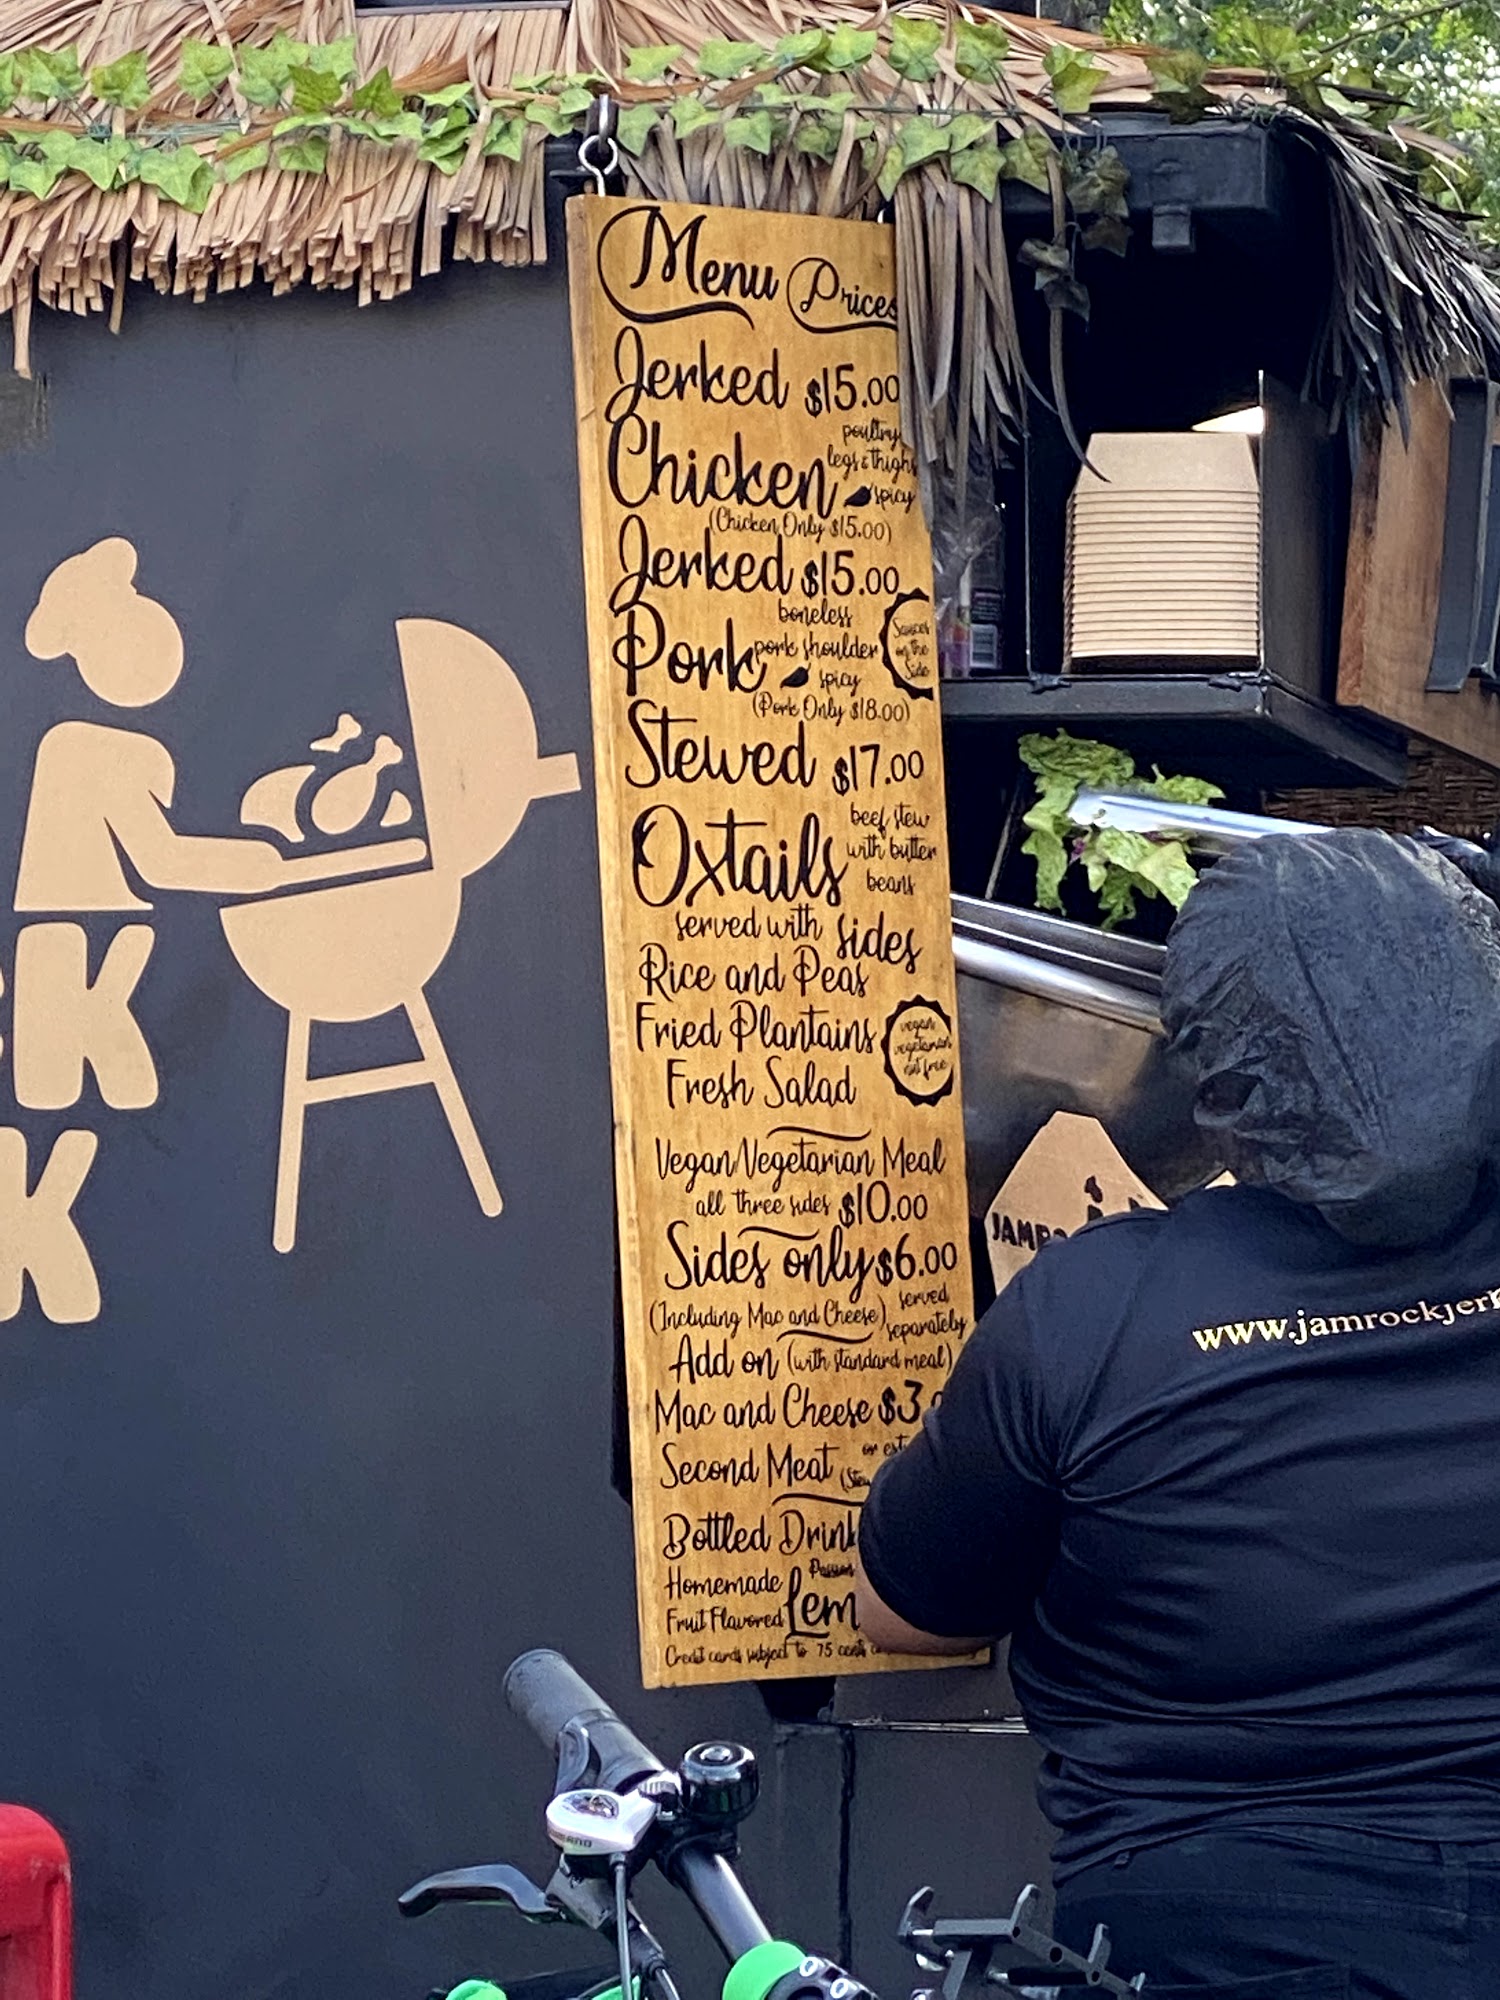 Menu Prices
Jerked $15.00
Chicken poultry
legs & thighs
spicy
(Chicken Only $15.00)
Jerked $15.00
Pork boneless
pork shoulder
spicy
Sauces
on the
Side
(Pork Only $18.00)
Stewed $17.00
Oxtails beef stew
with butter
beans
served with sides
Rice and Peas
Fried Plantains
Fresh Salad
vegan
vegetarian
nut free
Vegan/Vegetarian Meal
all three sides $10.00
Sides only $6.00
(Including Mac and Cheese) served
separately
Add on (with standard meal)
Mac and Cheese $3.
Second Meat
Bottled Drink
Homemade
Fruit Flavored Lem
Passion
Credit cards subject to 75 cents
K
K
JAMRO
www.jamrockjer